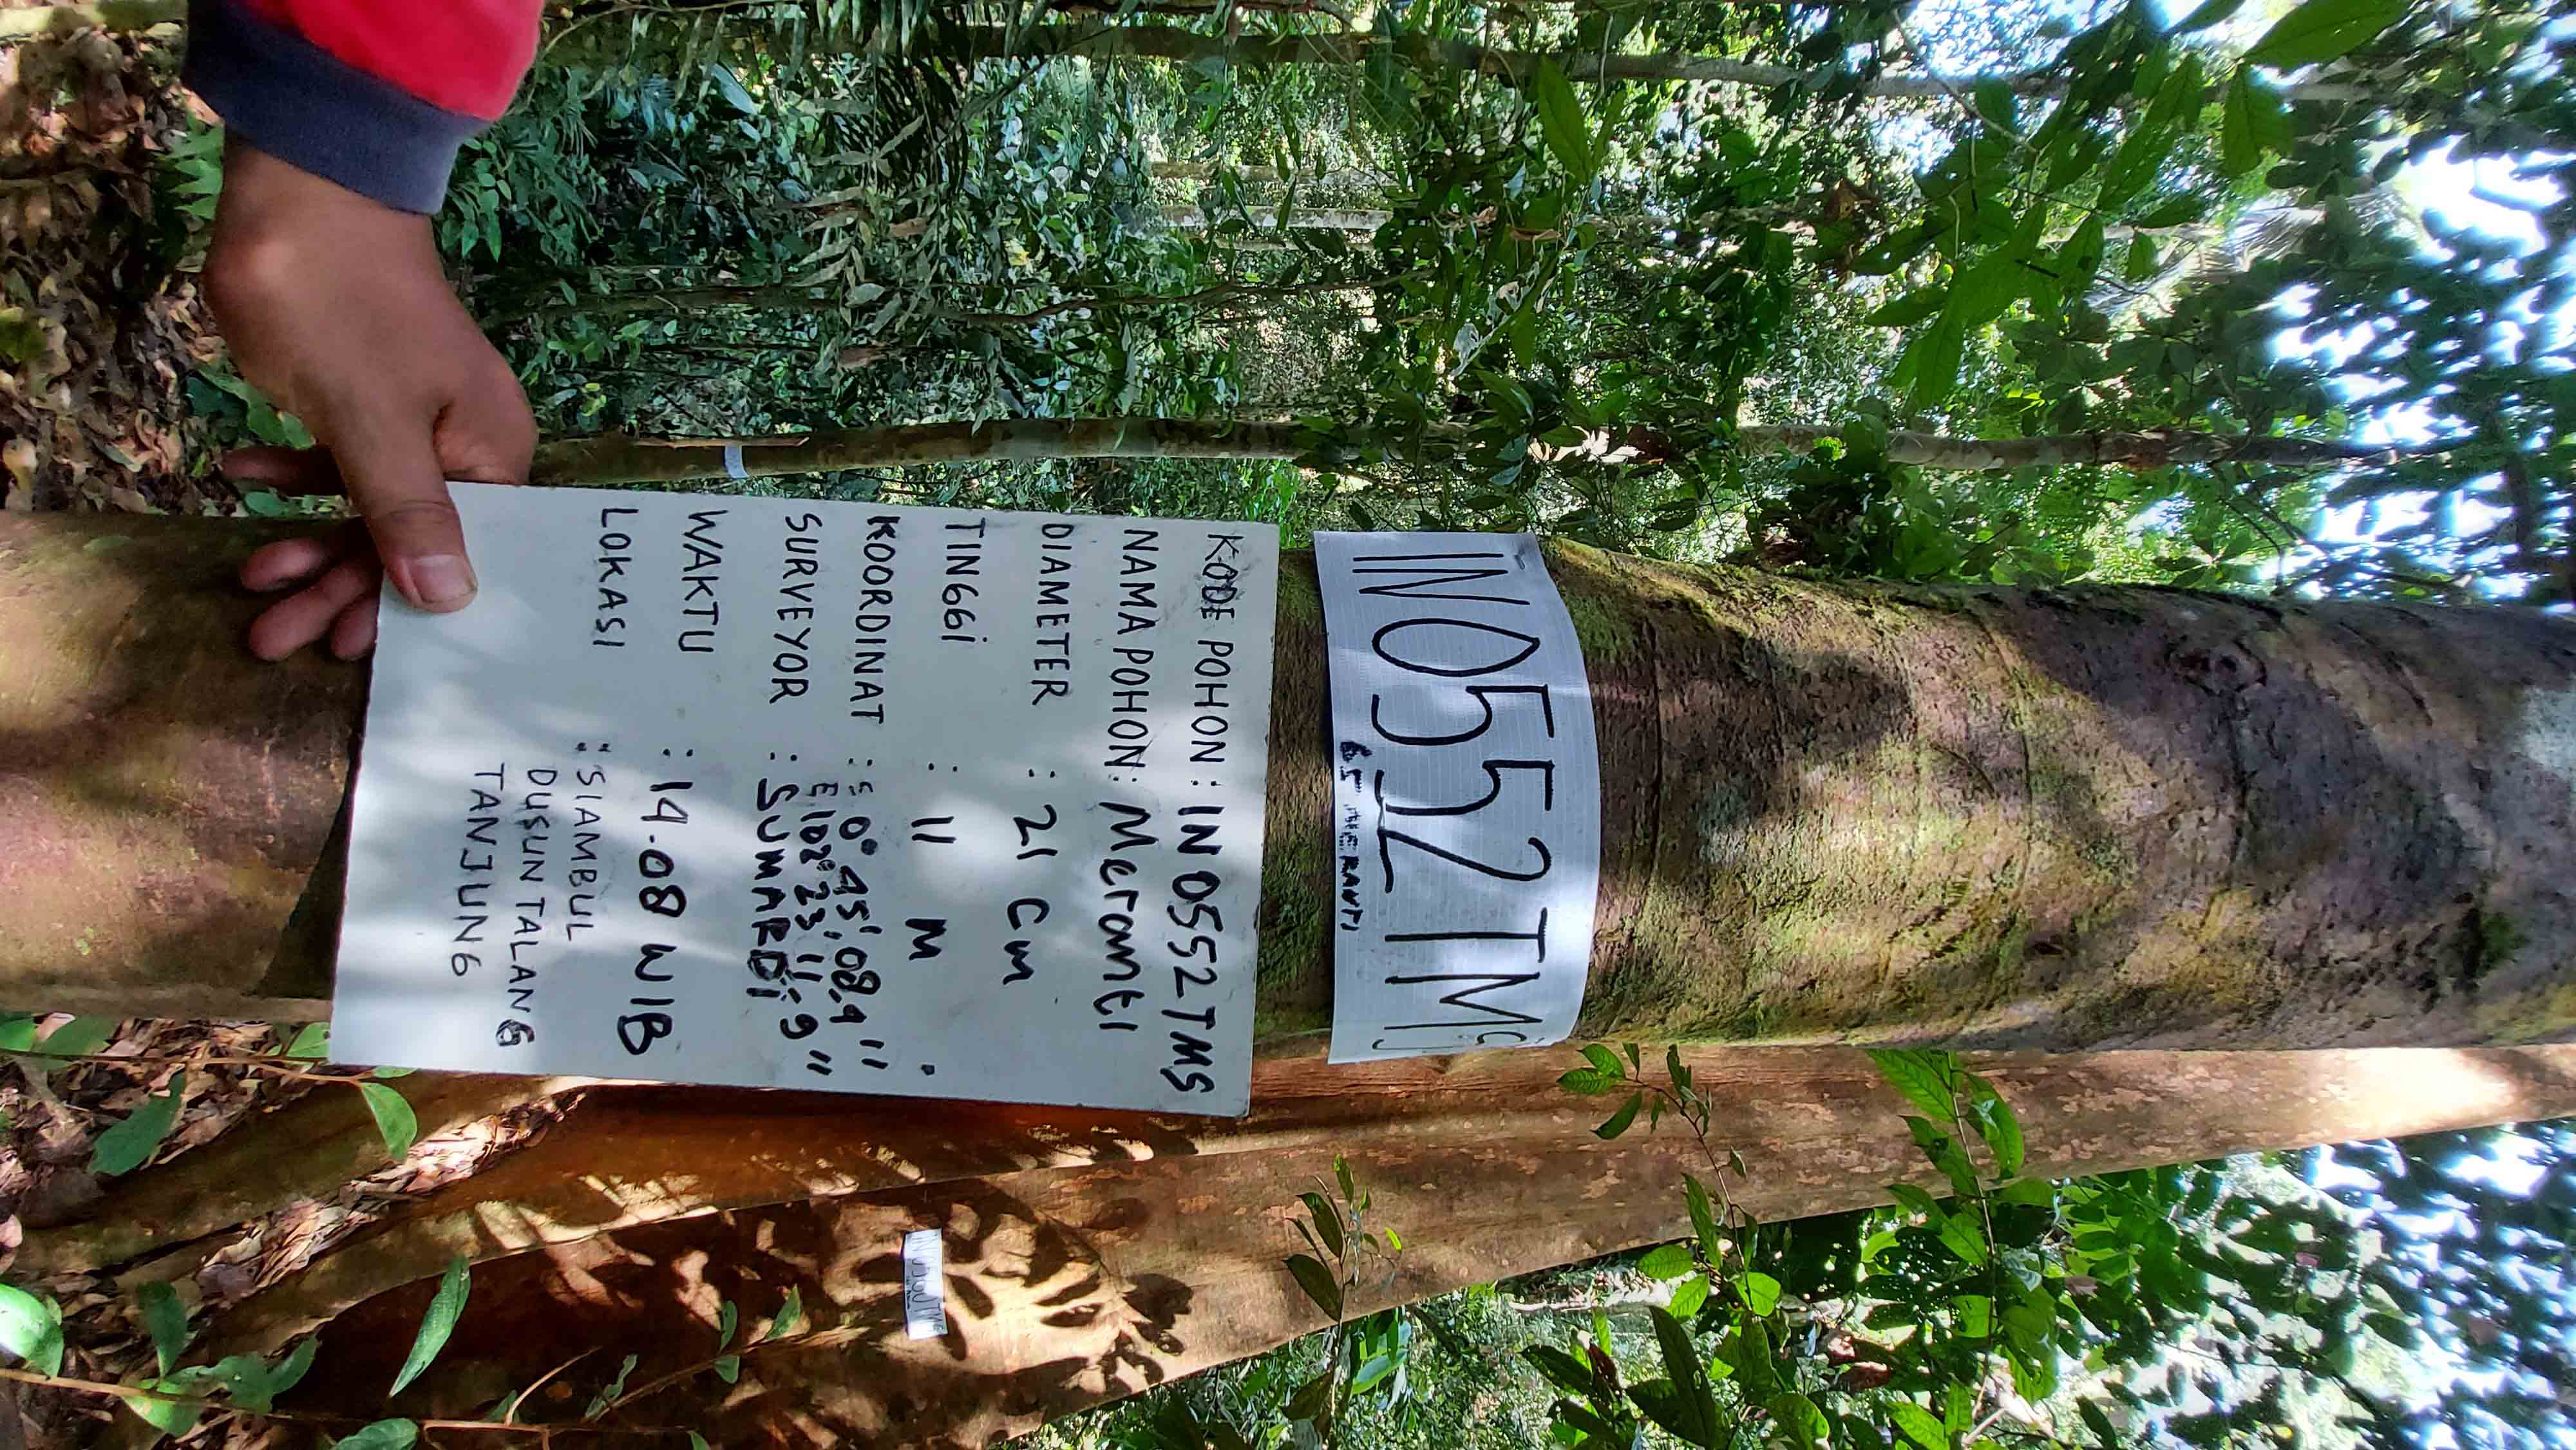 IN0552TMS
65 MERANTI
KODE POHON : IN 0552 TMS
NAMA POHON : Meranti
DIAMETER : 21 Cm
TINGGI : 11 M
KOORDINAT : S 0° 45', 08,9"
E 102° 23' 11,9"
SURVEYOR : SUMARDI
WAKTU : 14.08 WIB
LOKASI : SIAMBUL
DUSUN TALANG
TANJUNG
IN0560TMS